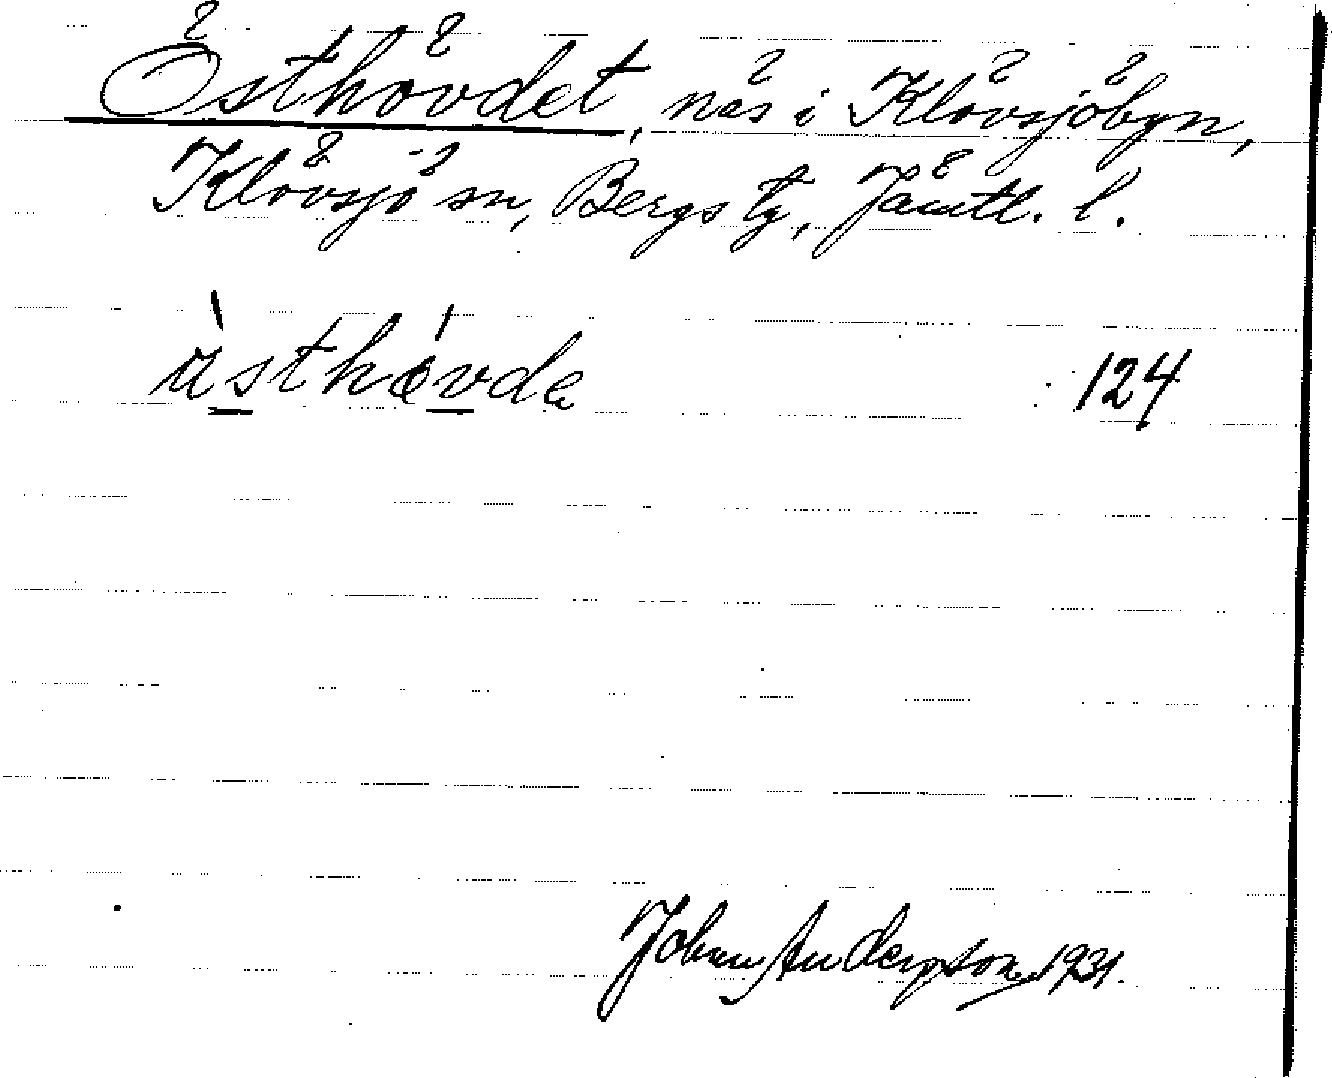 Östhövdet, näs i Klövsjöbyn,
Klövsjö sn, Bergs tg, Jämtl. l.
östhövda 124
Johan Anderpson 1931.